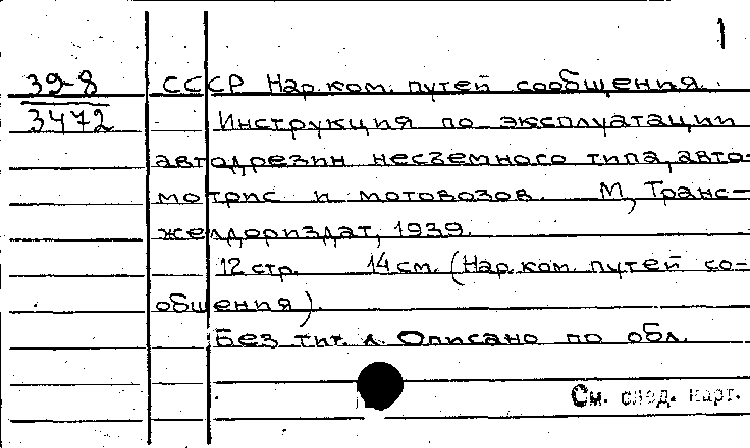 1
39-8
3472
СССР Нар.ком. путей сообщения.
Инструкция по эксплуатации
автодрезин несъемного типа, авто-
мотрис и мотовозов. М, Транс-
желдориздат, 1939.
12 стр. 14 см. (Нар.ком. путей со-
общения).
Без тит. л. Описано по обл.
См. след. карт.